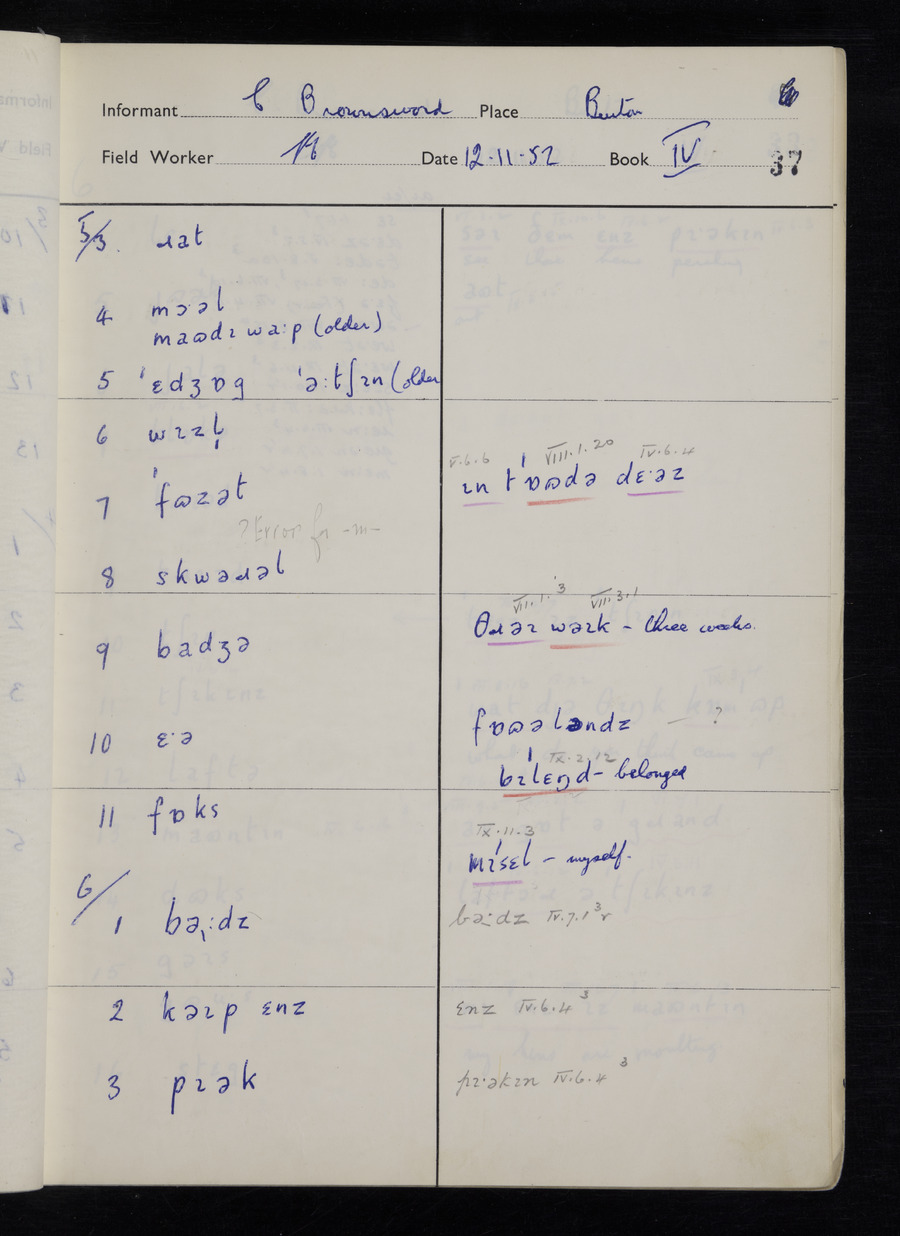 Informant C Brownsword Place Benton
Field Worker Date 12·11·52 Book IV
37
5/3. ɹat
4 mɔəl
maɷdɪ waːp (older)
5 ˈɛdʒɒg ˈəːtʃɪn (older
6 wɪzl̩
7 ˈfɷzət
?Error for -m-
8 skwəɹəl
9 badʒə
10 ɛ·ə
11 fɒks
6/
1 bəːdz
2 kəɪp ɛnz
3 pɪək
V.6.6 VIII.1.20 IV.6.4
ɪn t ˈɒɷdə dɛ·əz
VII.1.3 VII.3.1
θɹəɪ wəɪk – three weeks.
fɒɷələndz — ?
IX.2.12
bɪˈlɛŋd – belonged
IX.11.3
mɪˈsɛl – myself.
bə·dz IV.7.1³ r
ɛnz IV.6.4³
pɪ·əkɪn IV.6.4³